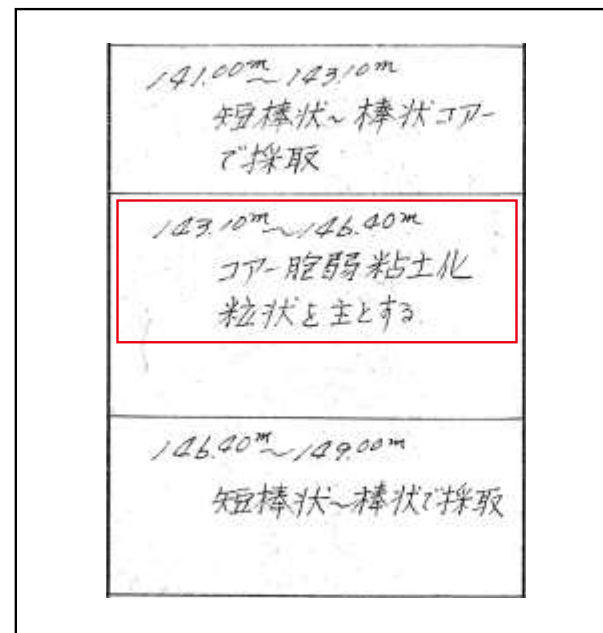 141.00m～143.10m
短棒状～棒状コアー
で採取
143.10m～146.40m
コアー脆弱粘土化
粒状を主とする
146.40m～149.00m
短棒状～棒状で採取